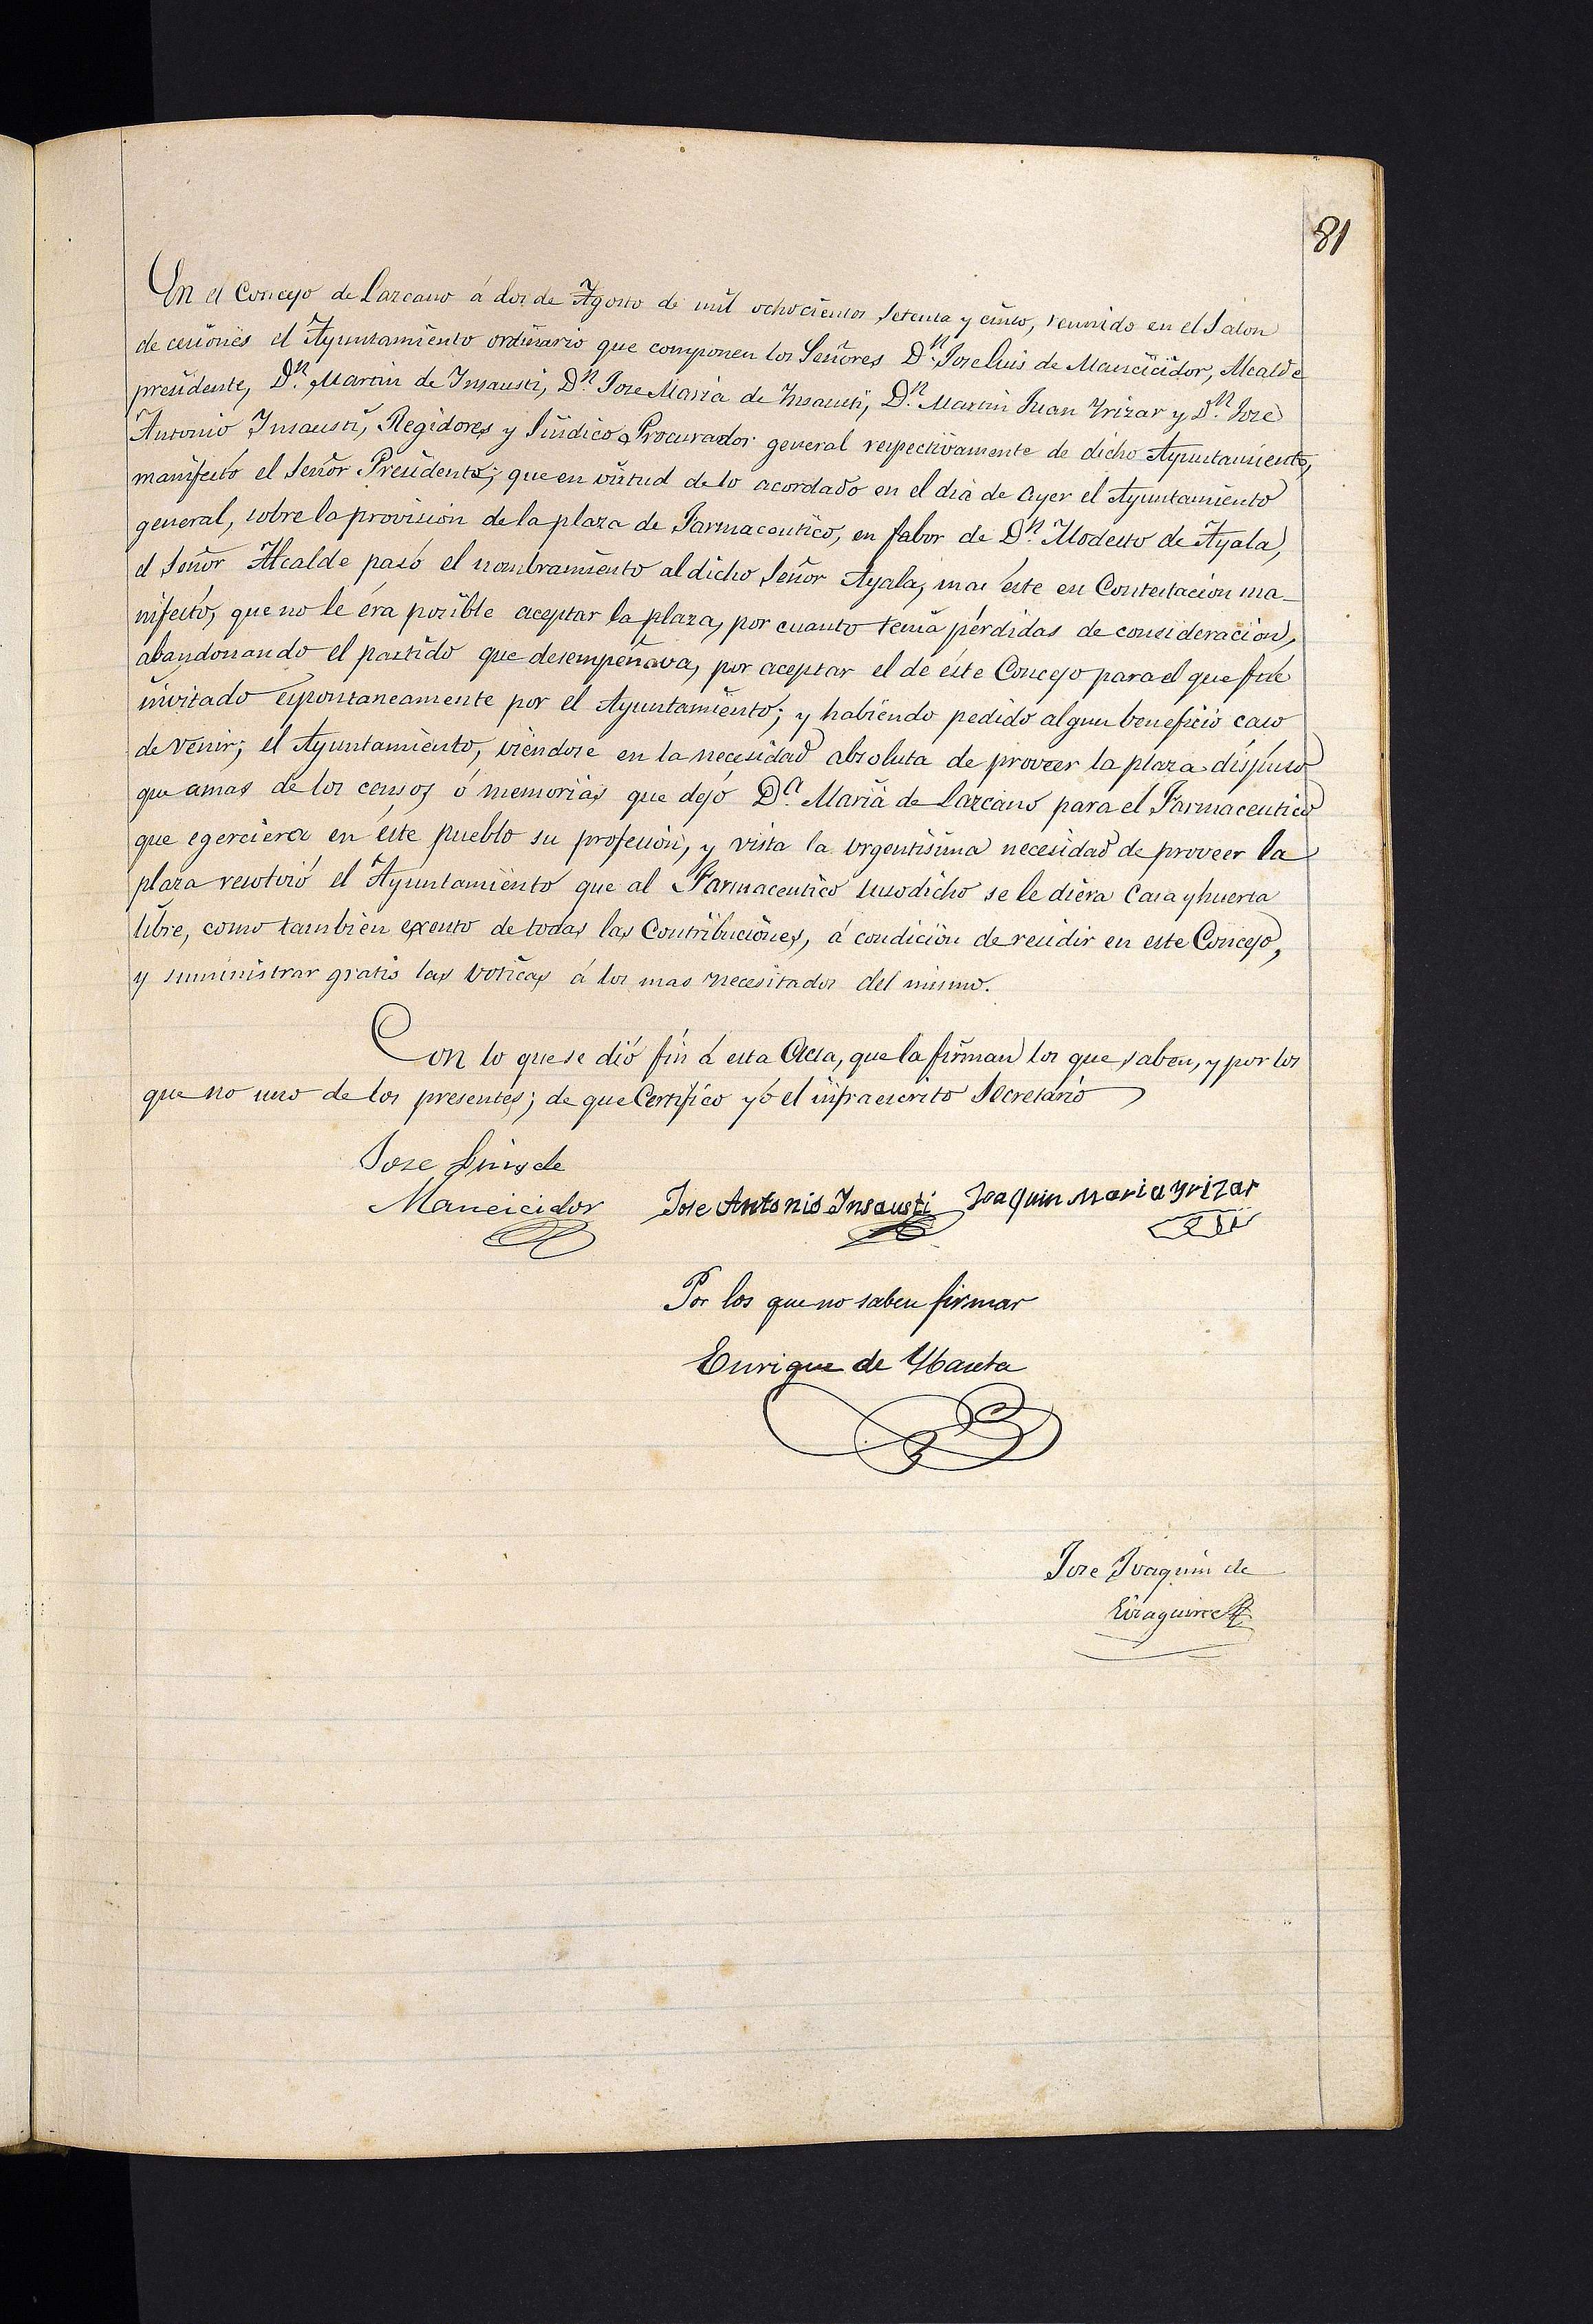 81
En el Concejo de Lazcano á dos de Agosto de mil ochocientos setenta y cinco, reunido en el Salon
de cesiones el Ayuntamiento ordinario que componen los Señores Dn. Jose Luis de Mancicidor, Alcalde
presidente, Dn. Martin de Insausti, Dn. Jose Maria de Insausti, Dn. Martin Juan Yrizar y Dn. José
Antonio Insausti, Regidores y Sindico Procurador general respectivamente de dicho Ayuntamiento,
manifestó el Señor Presidente; que en virtud de lo acordado en el dia de Ayer el Ayuntamiento
general, sobre la provision de la plaza de Farmaceutico, en fabor de Dn. Modesto de Ayala,
el Señor Alcalde pasó el nombramiento al dicho Señor Ayala, mas éste en Contestacion ma-
nifestó, que no le éra posible aceptar la plaza, por cuanto tenia pérdidas de consideracion,
abandonando el partido que desempeñava, por aceptar el de éste Concejo para el que fué
invitado espontaneamente por el Ayuntamiento; y habiendo pedido algun beneficio caso
de venir; el Ayuntamiento, viendose en la necesidad absoluta de proveer la plaza dispuso
que amas de los censos ó memorias que dejó Da. Maria de Lazcano para el Farmaceutico
que egerciera en éste pueblo su profesion, y vista la urgentisima necesidad de proveer la
plaza resolvió el Ayuntamiento que al Farmaceutico susodicho se le diera Casa y huerta
libre, como tambien exento de todas las Contribuciones, á condicion de residir en este Concejo,
y suministrar gratis las voticas á los mas necesitados del mismo.
Con lo que se dió fin á esta Acta, que la firman los que saben, y por los
que no uno de los presentes; de que Certifico yó el infraescrito Secretario
Jose Luis de
Mancicidor Jose Antonio Insausti Joaquin Maria Yrizar
Por los que no saben firmar
Enrique de
Jose Joaquin de